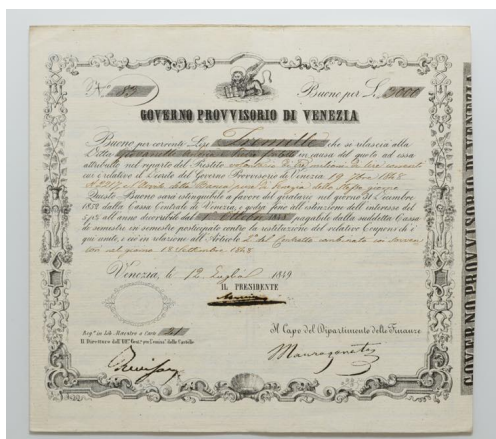 N.º 83 Buono per L. 3000
GOVERNO PROVVISORIO DI VENEZIA
Buono per correnti Lire Tremille che si rilascia alla
Ditta in causa del quoto ad essa
attribuito nel riparto del Prestito di Tre milioni di lire correnti
cui è relativo il Decreto del Governo Provvisorio di Venezia 19 7bre 1848
Questo Buono sarà estinguibile a favore del giratario nel giorno 31 Decembre
1852 dalla Cassa Centrale di Venezia, e gode fino all'estinzione dell'interesse del
per all'anno decorribile dal 1.º Ottobre 1848 pagabile dalla suddetta Cassa
di semestre in semestre posticipato contro la restituzione del relativo Coupon ch'è
qui unito, e ciò in relazione all'Articolo 2.º del Contratto
nel giorno 18 Settembre 1848
Venezia, li 12 Luglio 1849
IL PRESIDENTE
Manin
Reg.º in Lib. Maestro a Carte 21
Il Capo del Dipartimento delle Finanze
Maurogonato
GOVERNO PROVVISORIO DI VENEZIA